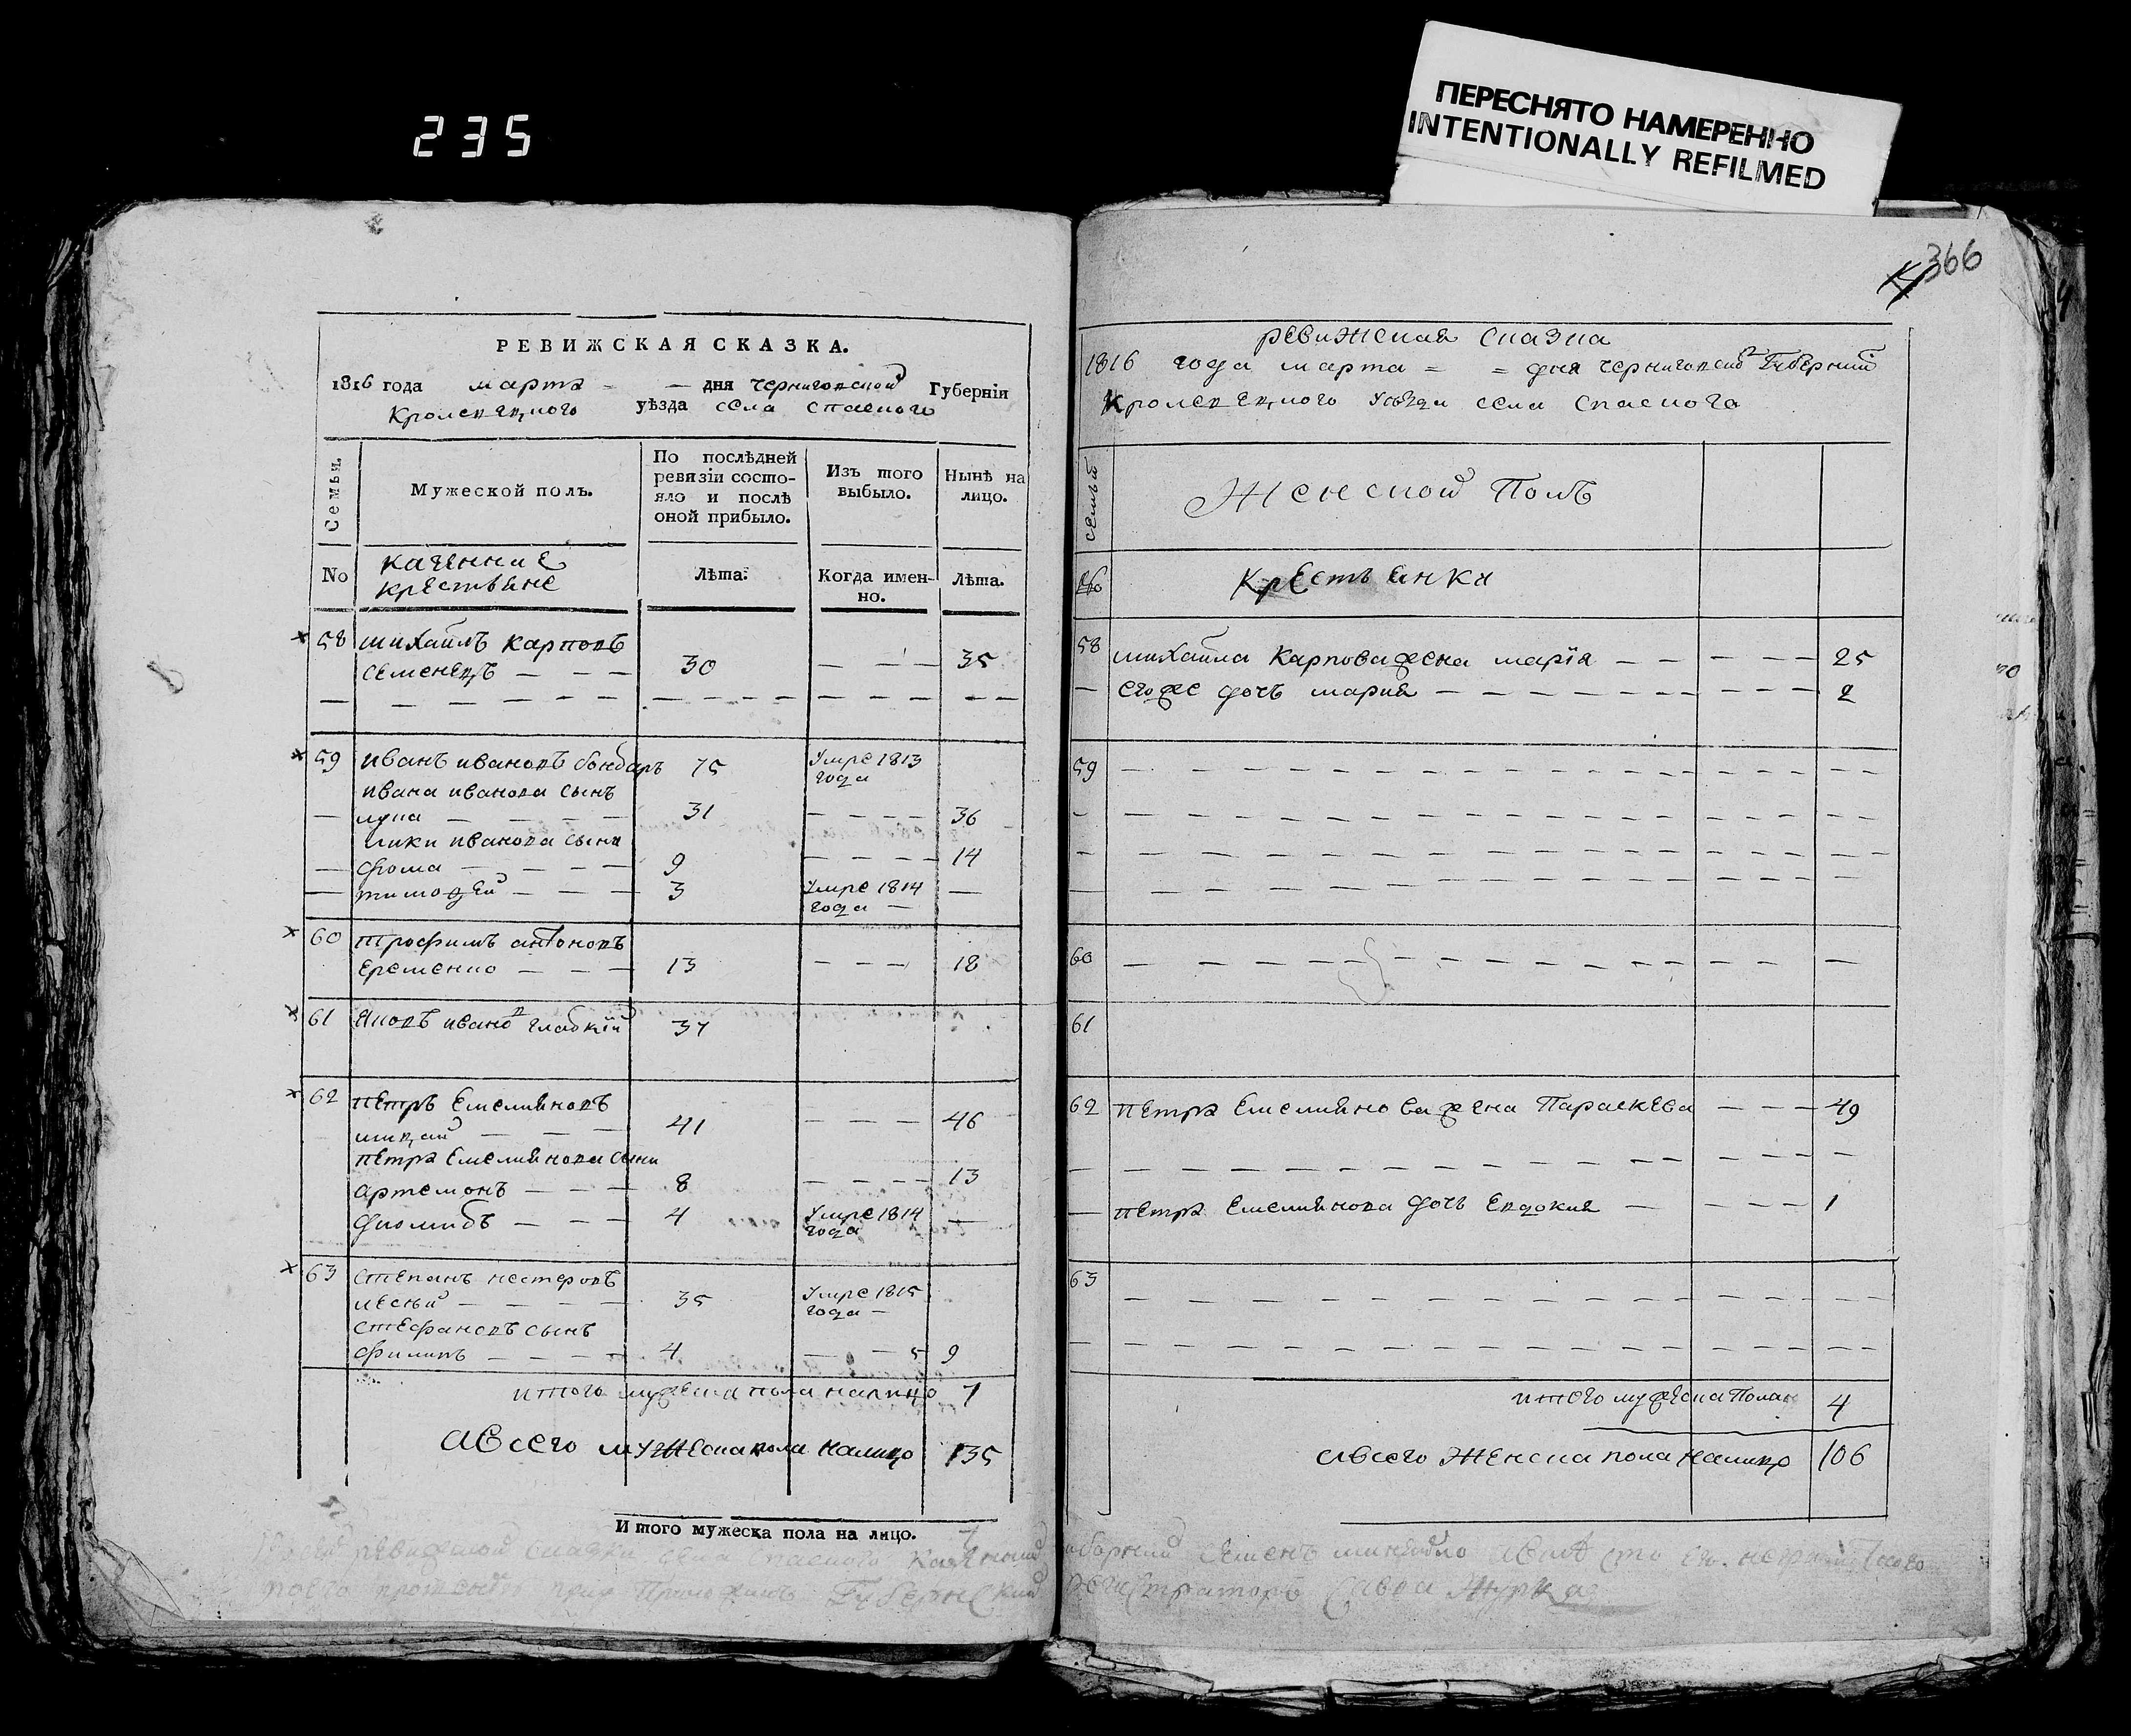 235
ПЕРЕСНЯТО НАМЕРЕННО
INTENTIONALLY REFILMED
366
РЕВИЖСКАЯ СКАЗКА.
1816 года марта = — дня черниговской Губерніи
Кролевецкого уѣзда села спаского
Семьи.
Мужеской полъ.
По послѣдней ревизіи состо-
яло и послѣ
оной прибыло.
Изъ того
выбыло.
Нынѣ на
лицо.
No
казенние
крестьяне
Лѣта:
Когда имен-
но.
Лѣта.
58 михайлъ карповъ
семенецъ — — — 30 — — — 35
59 иванъ ивановъ бондаръ 75 Умре 1813
года
ивана иванова сынъ
лука — — — 31 — — — — 36
луки иванова сыни
фома — — — 9 — — — — 14
тимофей — — — 3 Умре 1814 —
года —
60 трофимъ антоновъ
еременко — — — 13 — — — 18
61 яковъ ивановъ гладкій 37
62 петръ емелияновъ
— — 41 — — — 46
петра емелиянова сини
артемонъ — — — 8 — — — — 13
— — — 4 Умре 1814 —
года
63 степанъ нестеровъ
— — — — 35 Умре 1815
года —
стефановъ сынъ
филипъ — — — — 4 — — 5 9
итого мужеска пола налицо 7
авсего мужеска пола налицо 135
Итого мужеска пола на лицо. 7
ревижская сказка
1816 года марта = = дня черниговской Губерний
кролевецкого уезда села спаского
семьи
Женской Полъ
No
Крестьянки
58 михайла карпова жена марія — — — — — 25
егоже дочь мария — — — — — — — — — 2
59
60
61
62 петра емелиянова жена Параскева — — — 49
— петра емелиянова дочь евдокия — — — — 1
63
итого мужеска Пола 4
авсего женска пола налицо 106
ревижской сказки села спаского казенный выборний семенъ
Губернский регистраторъ савва